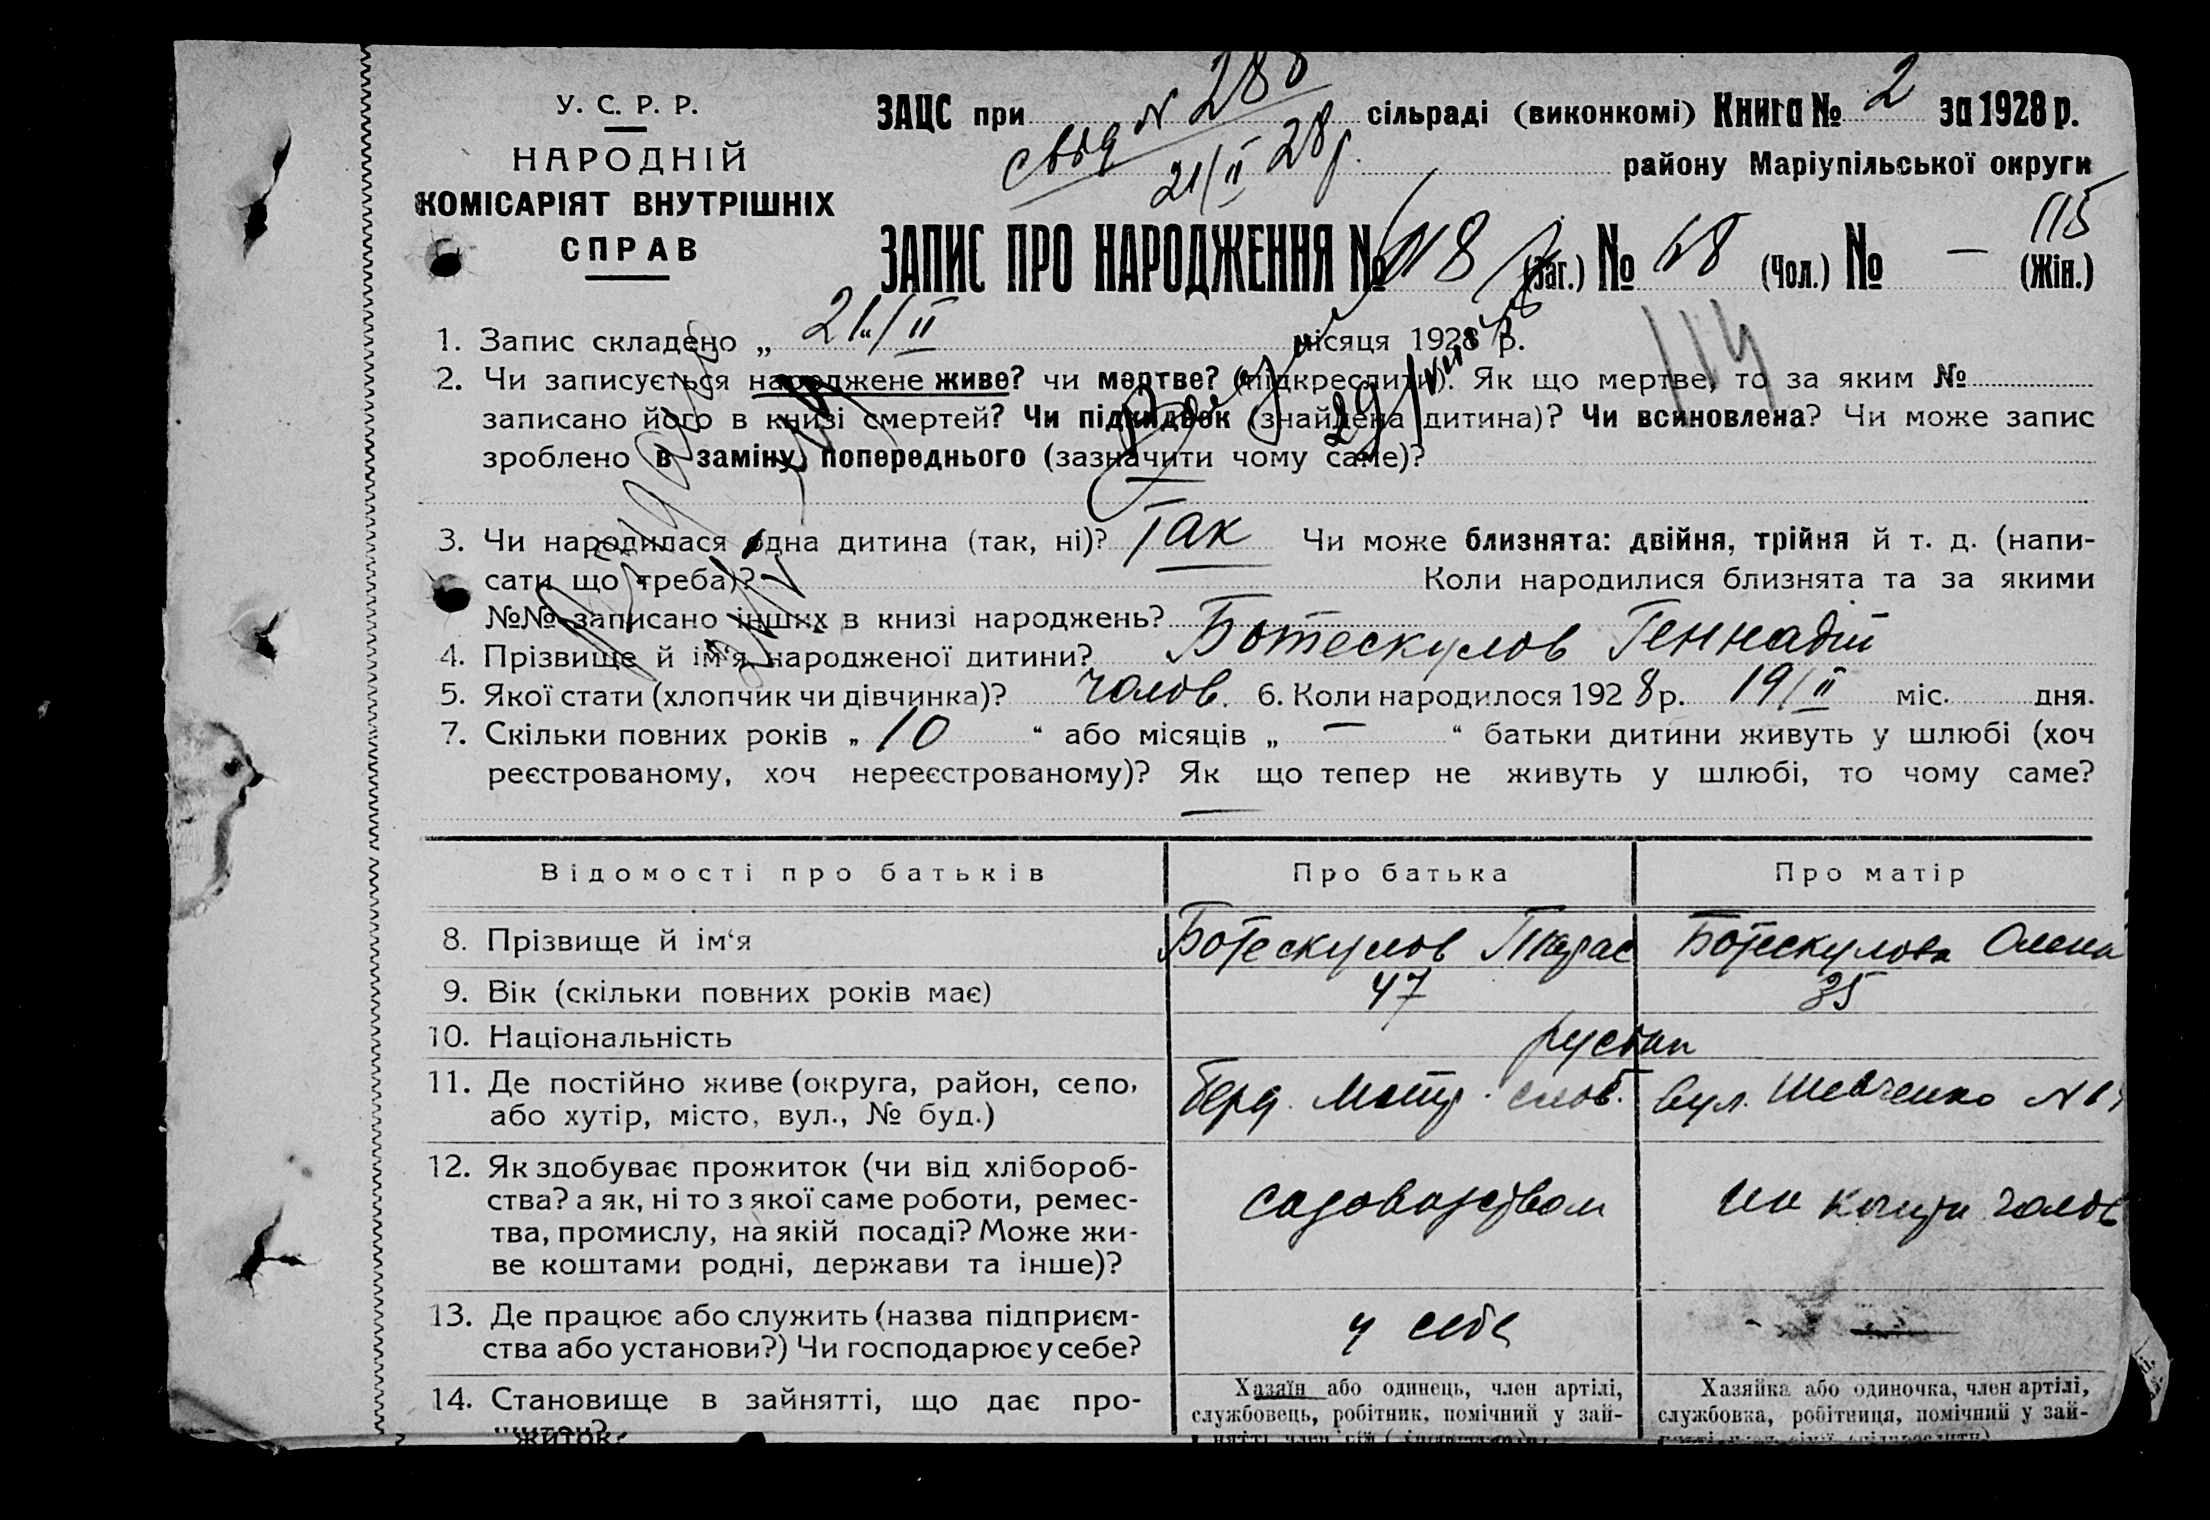 У. С. Р. Р.
НАРОДНІЙ
КОМІСАРІЯТ ВНУТРІШНІХ
СПРАВ
ЗАЦС при сільраді (виконкомі) Книга № 2 за 1928 р.
свид N 288
21/II 28 р.
району Маріупільської округи
115
ЗАПИС ПРО НАРОДЖЕННЯ № 118 (Заг.) № 68 (Чол.) № — (Жін.)
114
1. Запис складено „ 21 “/II місяця 1928 р.
2. Чи записується народжене живе? чи мертве? (підкреслити). Як що мертве, то за яким №
записано його в книзі смертей? Чи підкидьок (знайдена дитина)? Чи всиновлена? Чи може запис
зроблено в заміну попереднього (зазначити чому саме)? —
3. Чи народилася одна дитина (так, ні)? Так Чи може близнята: двійня, трійня й т. д. (напи-
сати що треба)? Коли народилися близнята та за якими
№№ записано інших в книзі народжень?
4. Прізвище й ім‘я народженої дитини? Ботескулов Геннадій
5. Якої стати (хлопчик чи дівчинка)? чолов. 6. Коли народилося 1928 р. 19/II міс. дня.
7. Скільки повних років „ 10 “ або місяців „ — “ батьки дитини живуть у шлюбі (хоч
реєстрованому, хоч нереєстрованому)? Як що тепер не живуть у шлюбі, то чому саме?
—
Відомості про батьків Про батька Про матір
8. Прізвище й ім‘я Ботескулов Тарас Ботескулова Олена
9. Вік (скільки повних років має) 47 35
10. Національність
11. Де постійно живе (округа, район, село, слоб. вул. Шевченко N
або хутір, місто, вул., № буд.)
12. Як здобуває прожиток (чи від хлібороб-
ства? а як, ні то з якої саме роботи, ремес- садоварством на кошти чолов
тва, промислу, на якій посаді? Може жи-
ве коштами родні, держави та інше)?
13. Де працює або служить (назва підприєм- у себе —
ства або установи?) Чи господарює у себе?
14. Становище в зайнятті, що дає про- Хазяїн або одинець, член артілі, Хазяйка або одиночка, член артілі,
житок? службовець, робітник, помічний у зай- службовка, робітниця, помічний у зай-